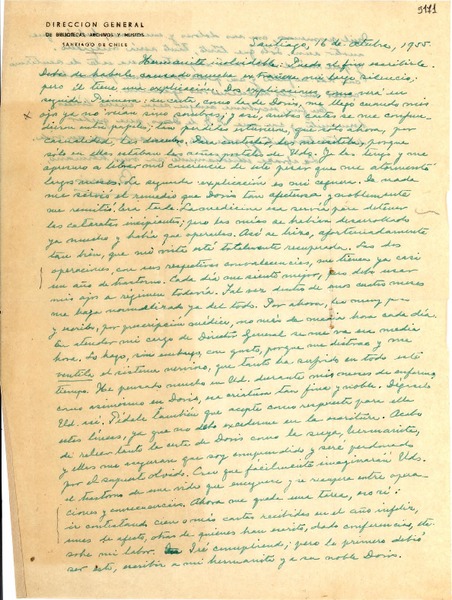 9111
DIRECCION GENERAL
DE BIBLIOTECAS, ARCHIVOS Y MUSEOS
SANTIAGO DE CHILE
Santiago, 16 de octubre, 1955.
Hermanita inolvidable: Puedo al fin escribirle.
Debo de haberle causado mucha extrañeza mi largo silencio;
pero él tiene una explicación. Dos explicaciones, como verá en
seguida. Primera: su carta, como la de Doris, me llegó cuando mis
ojos ya no veían sino sombras; y así, ambas cartas se me confun-
dieron entre papeles; tan perdidas estuvieron, que sólo ahora, por
casualidad, las descubro. Para contestar las necesitaba, porque
sólo en ellas estaban las señas postales de Uds. Ya las tengo y me
apresuro a librar mi conciencia de este pesar que me atormentó
largos meses. La segunda explicación es mi ceguera. De nada
me sirvió el remedio que Doris tan afectuosa y noblemente
me remitió. Era tarde. La medicina era servía para detener
las cataratas incipientes, pero las mías se habían desarrollado
ya mucho y había que operarlas. Así se hizo, afortunadamente
tan bien, que mi vista está totalmente recuperada. Las dos
operaciones, con sus respectivas convalecencias, me tienen ya casi
un año de trastorno. Cada día me siento mejor, pero debo usar
mis ojos a régimen todavía. Tal vez dentro de unos cuatro meses
me haya normalizado ya del todo. Por ahora, leo muy poco
y escribo, por prescripción médica, no más de media hora cada día.
En atender mi cargo de Director General se me va esa media
hora. Lo hago, sin embargo, con gusto, porque me distrae y me
ventila el sistema nervioso, que tanto ha sufrido en todo este
tiempo. He pensado mucho en Ud. durante mis meses de enfermo,
como asimismo en Doris, esa criatura tan fina y noble. Dígaselo
Ud. así. Pídale también que acepte como respuesta para ella
estas líneas, ya que no debo excederme en la escritura. Acabo
de releer tanto la carta de Doris como la suya, hermanita,
y ellas me aseguran que soy comprendido y seré perdonado
por el supuesto olvido. Creo que fácilmente imaginarán Uds.
el trastorno de una vida que enceguece y se recupera entre opera-
ciones y convalecencias. Ahora me queda una tarea, eso sí:
ir contestando cien o más cartas recibidas en el año infeliz,
unas de afecto, otras de quienes han escrito, dado conferencias, etc.
sobre mi labor. Iré cumpliendo; pero lo primero debió
ser esto, escribir a mi hermanita y a su noble Doris.